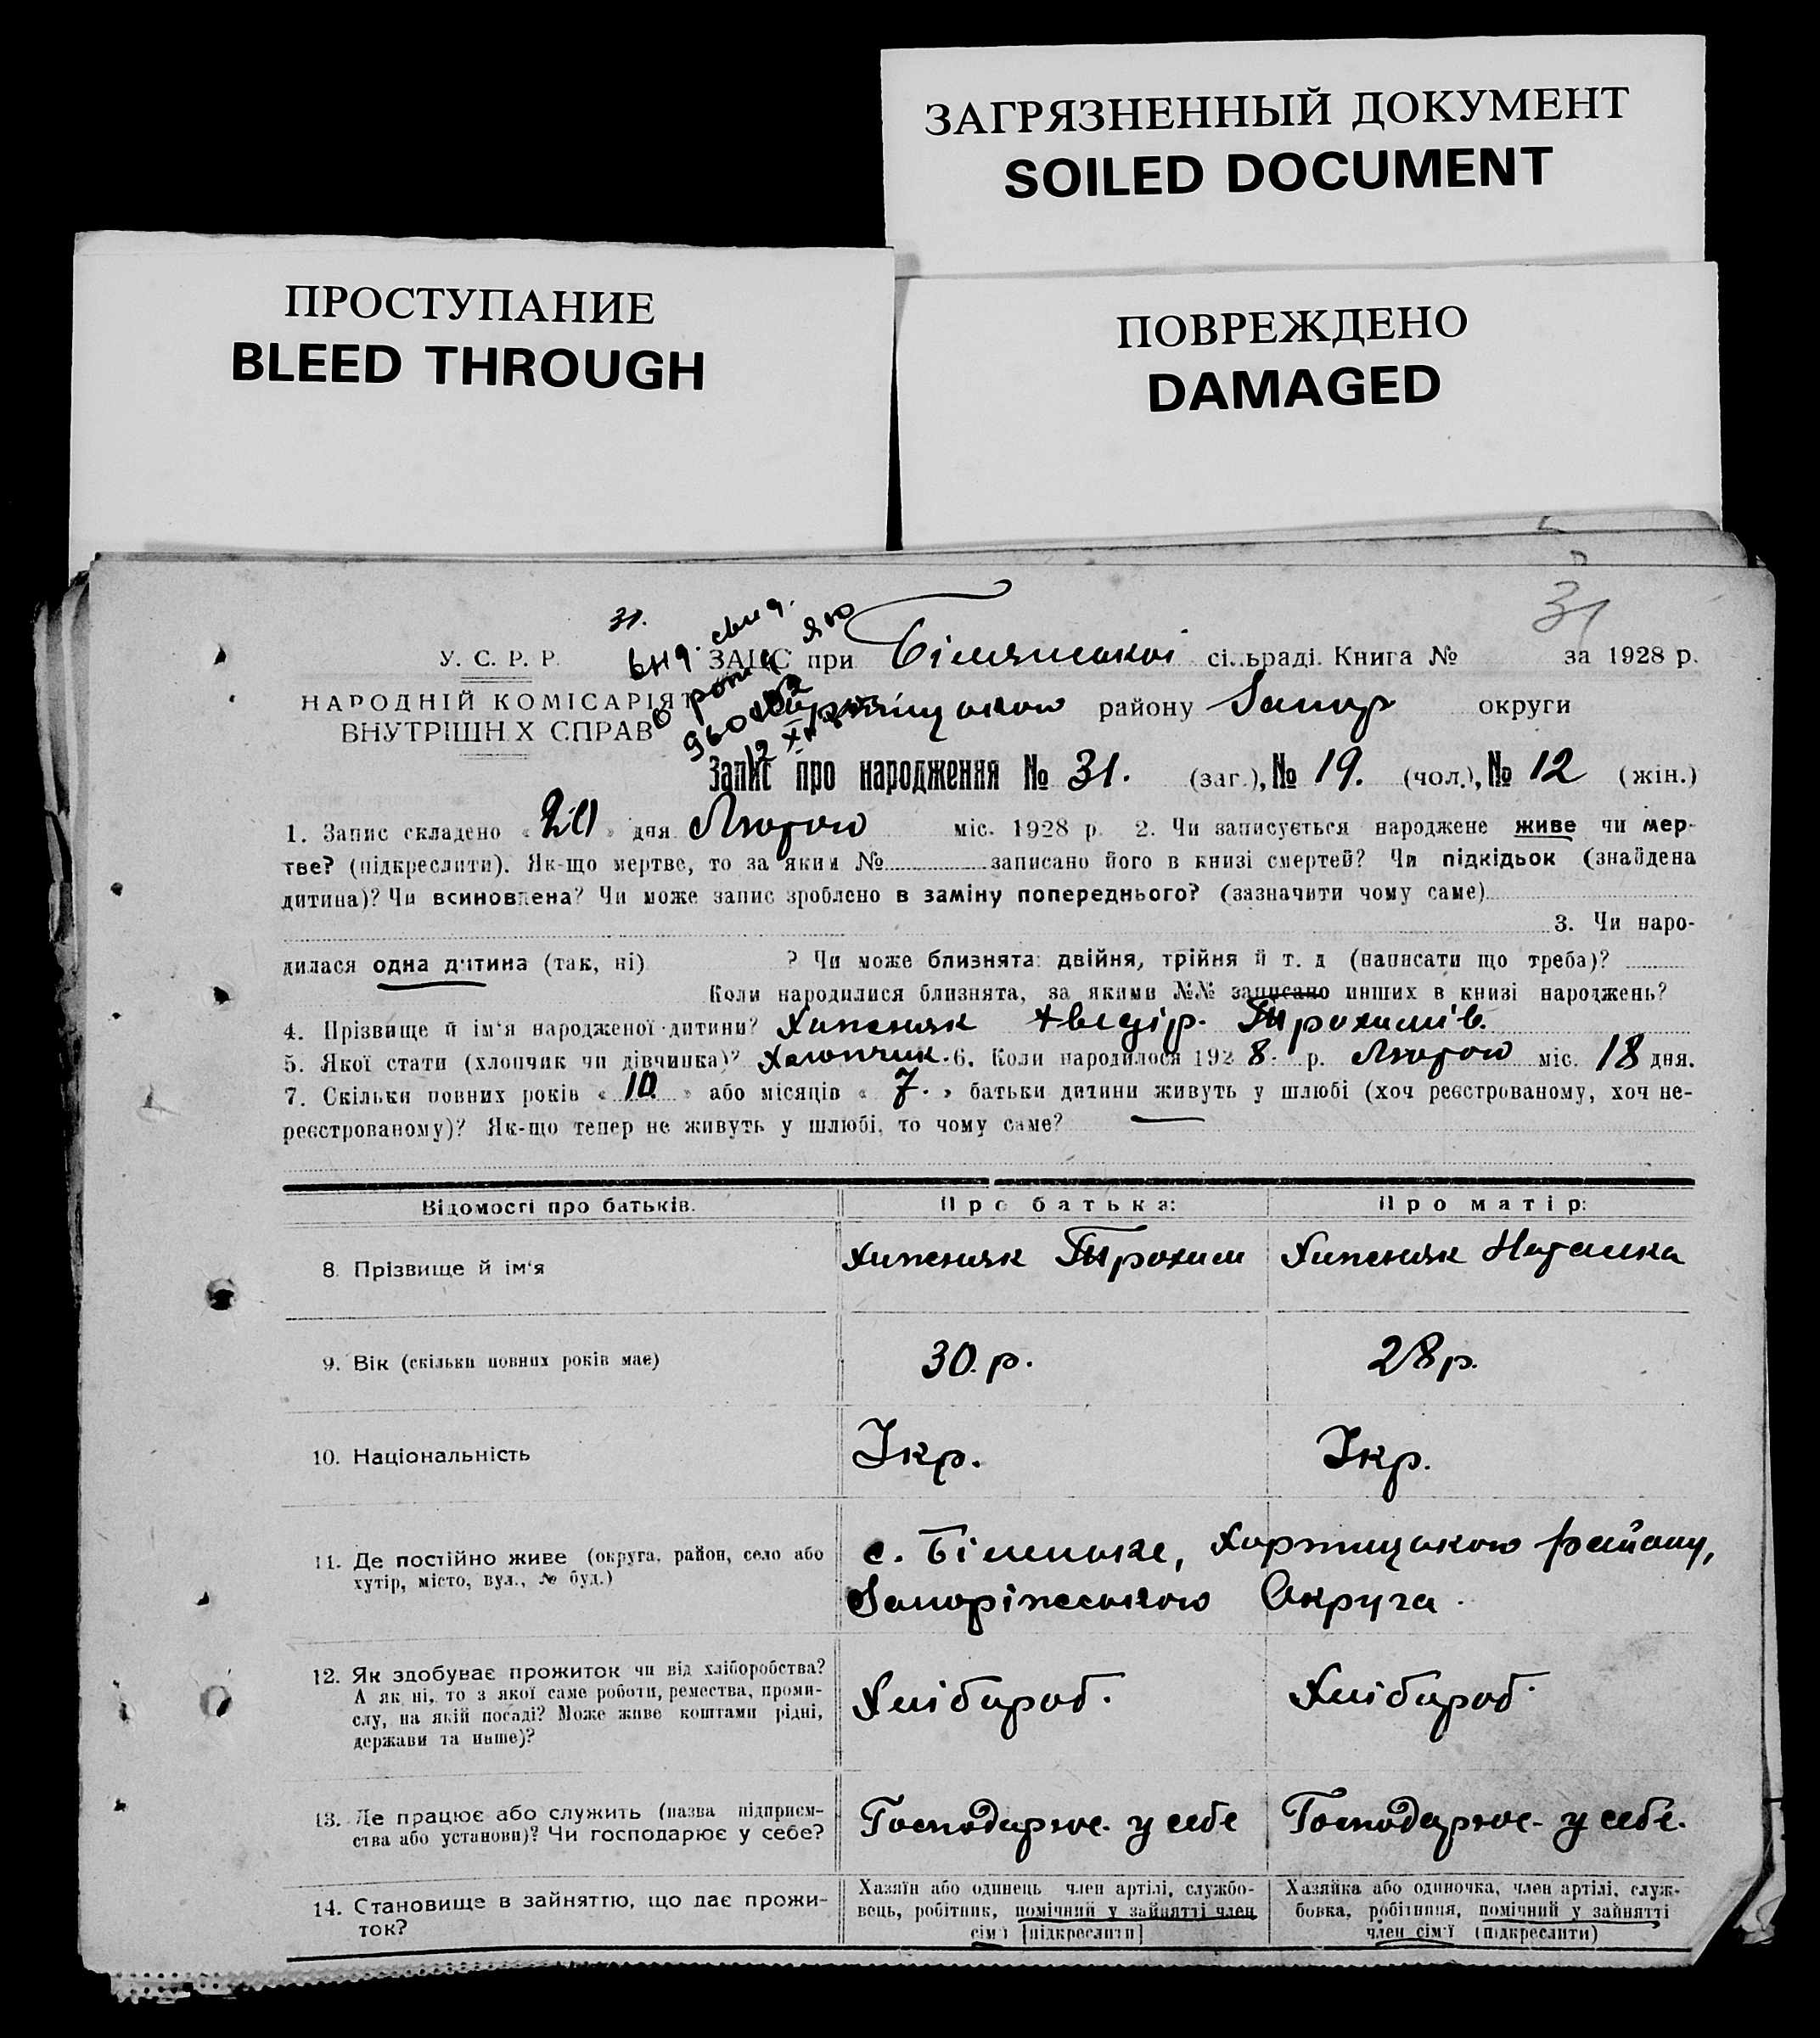 ЗАГРЯЗНЕННЫЙ ДОКУМЕНТ
SOILED DOCUMENT
ПРОСТУПАНИЕ
BLEED THROUGH
ПОВРЕЖДЕНО
DAMAGED
31
31.
У. С. Р. Р.
НАРОДНІЙ КОМІСАРІЯТ
ВНУТРІШН Х СПРАВ
ЗАГС при сільраді. Книга № за 1928 р.
району Запор округи
Запис про народження № 31. (заг.), № 19. (чол.), № 12 (жін.)
1. Запис складено « 20 » дня Лютого міс. 1928 р. 2. Чи записується народжене живе чи мер-
тве? (підкреслити). Як-що мертве, то за яким № записано його в книзі смертей? Чи підкідьок (знайдена
дитина)? Чи всиновлена? Чи може запис зроблено в заміну попереднього? (зазначити чому саме)
3. Чи наро-
дилася одна дитина (так, ні) ? Чи може близнята: двійня, трійня й т. д (написати що треба)?
Коли народилися близнята, за якими №№ записано инших в книзі народжень?
4. Прізвище й ім'я народженої дитини? Хижняк Трохимів.
5. Якої стати (хлопчик чи дівчинка)? Хлопчик. 6. Коли народилося 1928. р. Лютого міс. 18 дня.
7. Скільки повних років « 10 » або місяців « 7. » батьки дитини живуть у шлюбі (хоч реєстрованому, хоч не-
реєстрованому)? Як-що тепер не живуть у шлюбі, то чому саме? —
Відомості про батьків.
Про батька:
Про матір:
8. Прізвище й ім'я
Хижняк Трохим
Хижняк Наталка
9. Вік (скільки повних років має)
30. р.
28 р.
10. Національність
Укр.
Укр.
11. Де постійно живе (округа, район, село або
хутір, місто, вул., № буд.)
с. Хортицького району,
Запоріжського Округа.
12. Як здобуває прожиток чи від хліборобства?
А як ні, то з якої саме роботи, ремества, проми-
слу, на якій посаді? Може живе коштами рідні,
держави та инше)?
Хлібороб.
Хлібороб.
13. Де працює або служить (назва підприєм-
ства або установи)? Чи господарює у себе?
Господарює. у себе
Господарює. у себе.
14. Становище в зайняттю, що дає прожи-
ток?
Хазяїн або одинець член артілі, службо-
вець, робітник, помічний у зайнятті член
сім'ї [підкреслити]
Хазяйка або одиночка, член артілі, служ-
бовка, робітниця, помічний у зайнятті
член сім'ї (підкреслити)